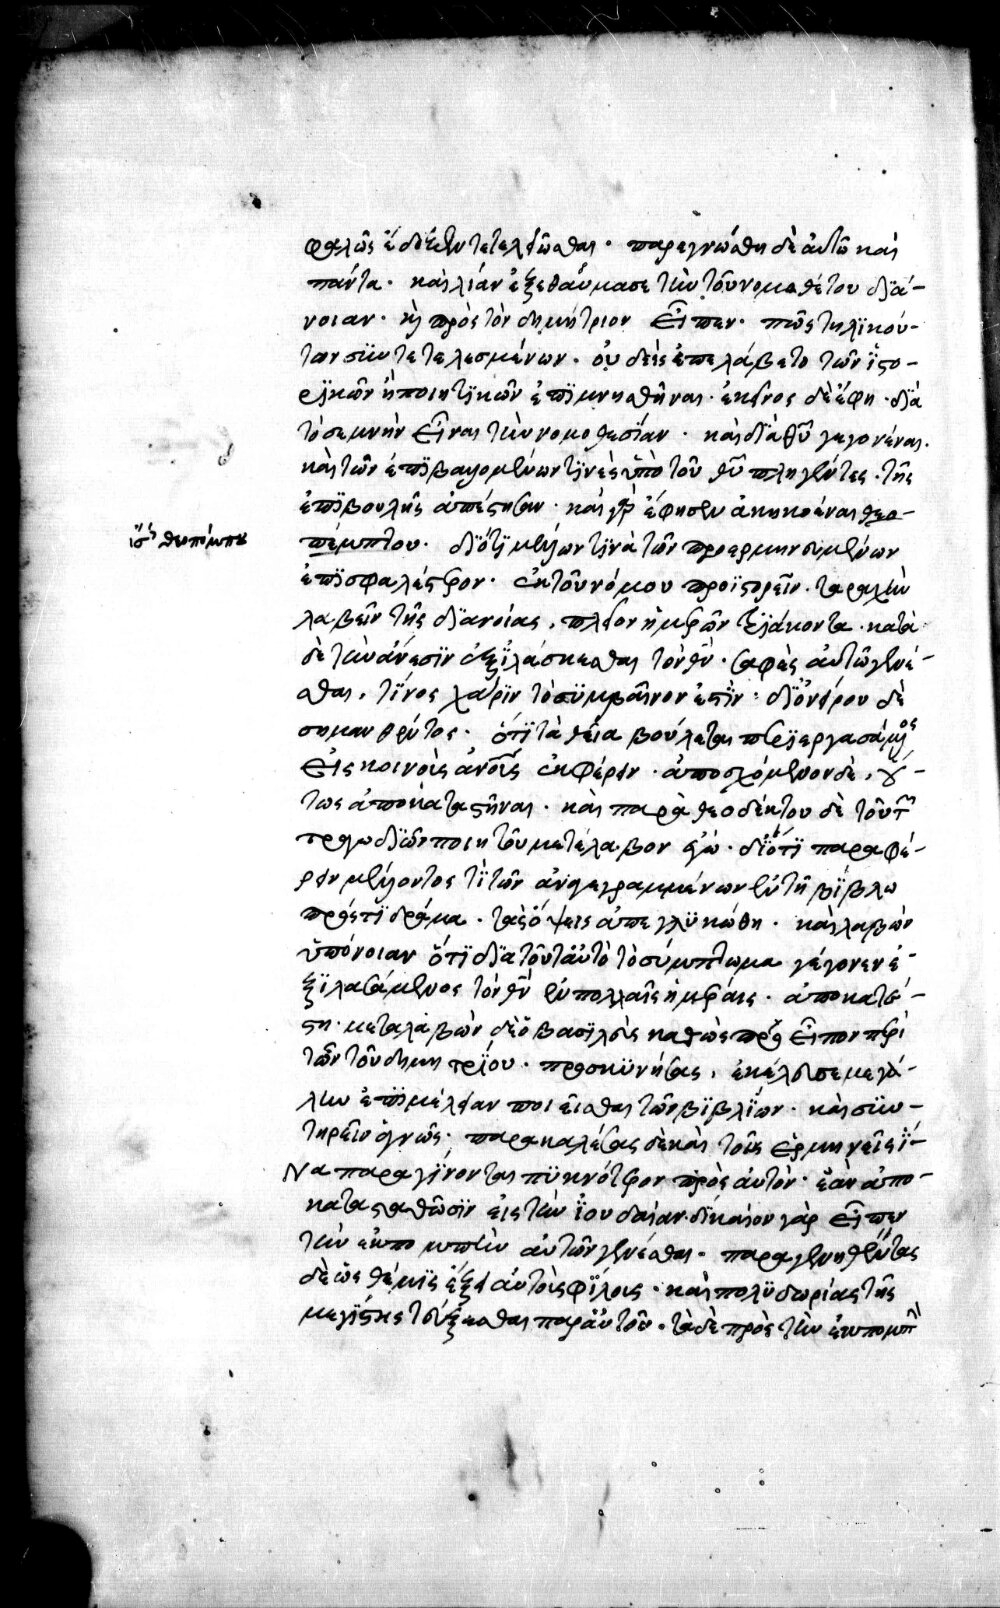 φαλῶς ἔδοξεν τετελειῶσθαι · παρεγνώσθη δὲ αὐτῶ καὶ
πάντα · καὶ λίαν ἐξεθαύμασε τὴν τοῦ νομοθέτου διά-
νοιαν · κ πρὸς τὸν δημήτριον εἶπεν · πῶς τηλικού-
των συντετελεσμένων · οὐδεὶς ἐπελάβετο τῶν ἱστο-
ρικῶν ἢ ποιητικῶν ἐπιμνησθῆναι · ἐκεῖνος δὲ ἔφη · διὰ
τὸ σεμνὴν εἶναι τὴν νομοθεσίαν · καὶ διὰ θῦ γεγονέναι ·
καὶ τῶν ἐπιβαλομένων τινὲς ὑπὸ τοῦ θῦ πληγέντες · τῆς
ἐπιβουλῆς ἀπέστησαν · καὶ γὰρ ἔφησεν ἀκηκοέναι θεο-
ἴσ θεοπόμπου
πέμπτου · διότι μέλλων τινὰ τῶν προερμηνευμένων
ἐπισφαλέστερον · ἐκ τοῦ νόμου προϊστορεῖν · ταραχὴν
λαβεῖν τῆς διανοίας , πλεῖον ἡμερῶν τριάκοντα · κατὰ
δὲ τὴν ἄνεσιν ἐξιλάσκεσθαι τὸν θν · σαφὲς αὐτῶ γενέ-
σθαι , τίνος χάριν τὸ συμβαῖνον ἐστὶν · δι' ὀνείρου δὲ
σημανθέντος · ὅτι τὰ θεῖα βούλεται περιεργασάμενος
εἰς κοινοὺς ἀνοὺς ἐκφέρειν · ἀποσχόμενον δὲ , οὕ-
τως ἀποκαταστῆναι · καὶ παρὰ θεοδέκτου δὲ τοῦ τῶν
τραγωδιῶν ποιητοῦ μετέλαβον ἐγὼ · διότι παραφέ-
ρειν μέλλοντος τί τῶν ἀναγεγραμμένων ἐν τῆ βίβλω
πρός τι δράμα · τὰς ὄψεις ἀπεγλυκώθη · καὶ λαβὼν
ὑπόνοιαν ὅτι διὰ τοῦτ' αὐτὸ τὸ σύμπτωμα γέγονεν ἐ-
ξιλασάμενος τὸν θν ἐν πολλαῖς ἡμέραις · ἀποκατέ-
στη · μεταλαβὼν δὲ ὁ βασιλεὺς καθὼς προεῖπον περὶ
τῶν τοῦ δημητρίου · προσκυνήσας , ἐκέλευσε μεγά-
λην ἐπιμέλειαν ποιεῖσθαι τῶν βιβλίων · καὶ συν-
τηρεῖν ἁγνῶς · παρακαλέσας δὲ καὶ τοὺς ἑρμηνεῖς ἵ-
να παραγίνονται πυκνότερον πρὸς αὐτὸν · ἐὰν ἀπο-
κατασταθῶσιν εἰς τὴν ἰουδαίαν · δίκαιον γὰρ εἶπεν
τὴν ἐκπομπὴν αὐτῶν γενέσθαι · παραγενηθέντας
δὲ ὡς θέμις ἕξει αὐτοὺς φίλοις · καὶ πολυδωρίας τῆς
μεγίστης τεύξεσθαι παρ' αὐτοῦ · τὰ δὲ πρὸς τὴν ἐκπομπὴν